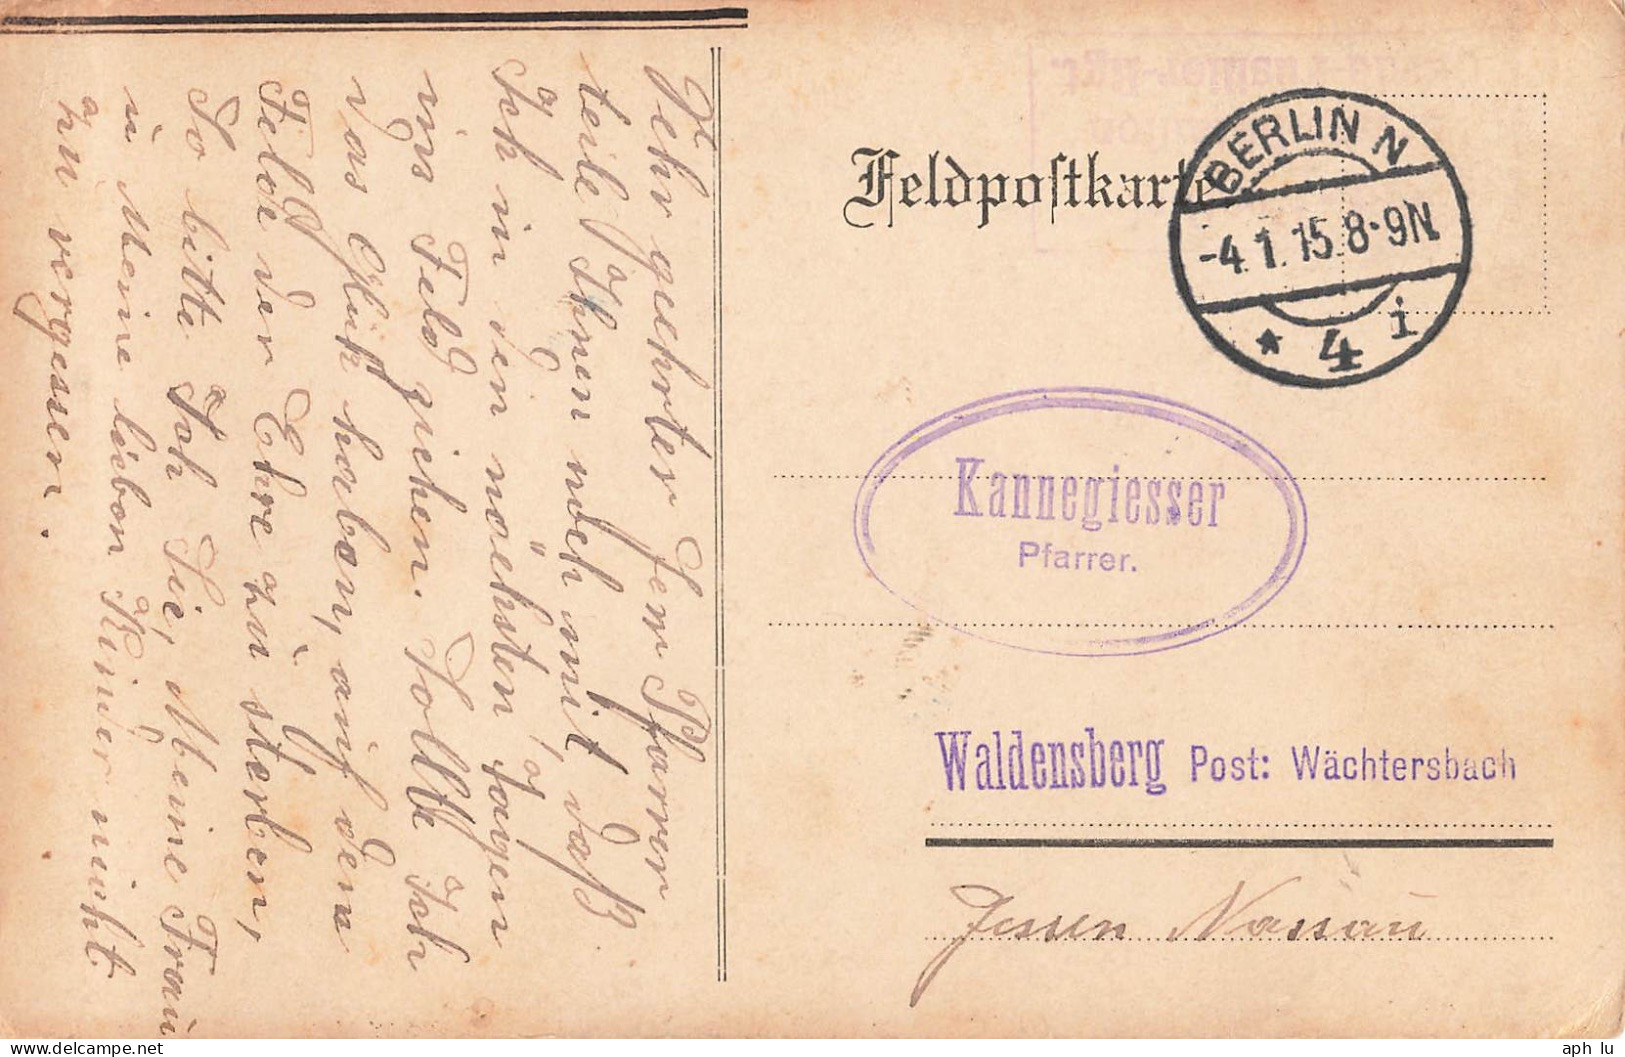 Sehr geehrter Herr Pfarrer
teile Ihnen noch mit, daß
Ich in den nächsten Tagen
ins Feld ziehen. Sollte Ich
das Glük haben, auf dem
Felde der Ehre zu sterben,
So bitte Ich Sie, Meine Frau
u Meine lieben Kinder nicht
zu vergessen.
Feldpostkarte
BERLIN N
-4.1.15.8-9N.
* 4 i
Kannegiesser
Pfarrer.
Waldensberg Post: Wächtersbach
Hessen Nassau
aph lu